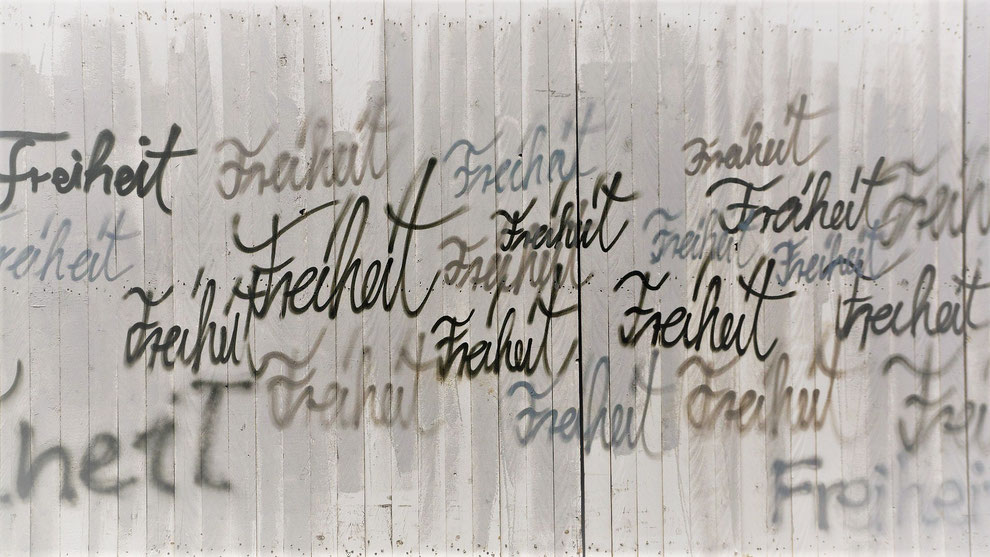 Freiheit
Freiheit
Freiheit
Freiheit
Freiheit
Freiheit
Freiheit
Freiheit
Freiheit
Freiheit
Freiheit
Freiheit
Freih
reiheit
Freiheit
Freiheit
Freiheit
Freiheit
Freiheit
Freiheit
Freiheit
Frei
heit
Freihei